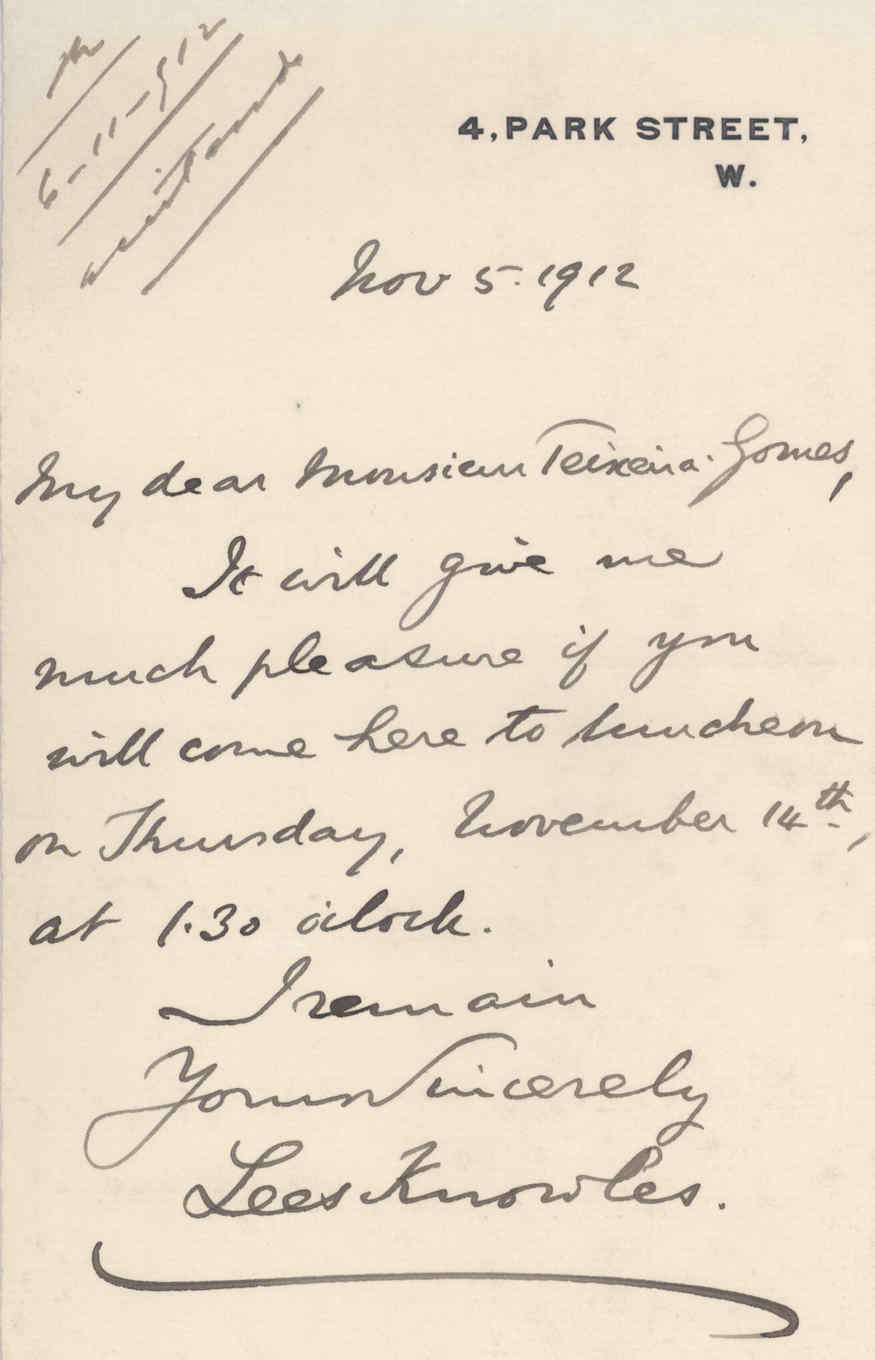 6-11-912
aceitando
4, PARK STREET,
W.
Nov 5. 1912
My dear Monsieur Teixeira-Gomes,
It will give me
much pleasure if you
will come here to luncheon
on Thursday, November 14th,
at 1.30 o'clock.
I remain
Yours sincerely
Lees Knowles.